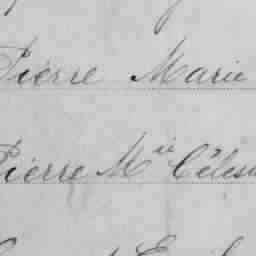 Pierre Marie
Pierre Mie Céles